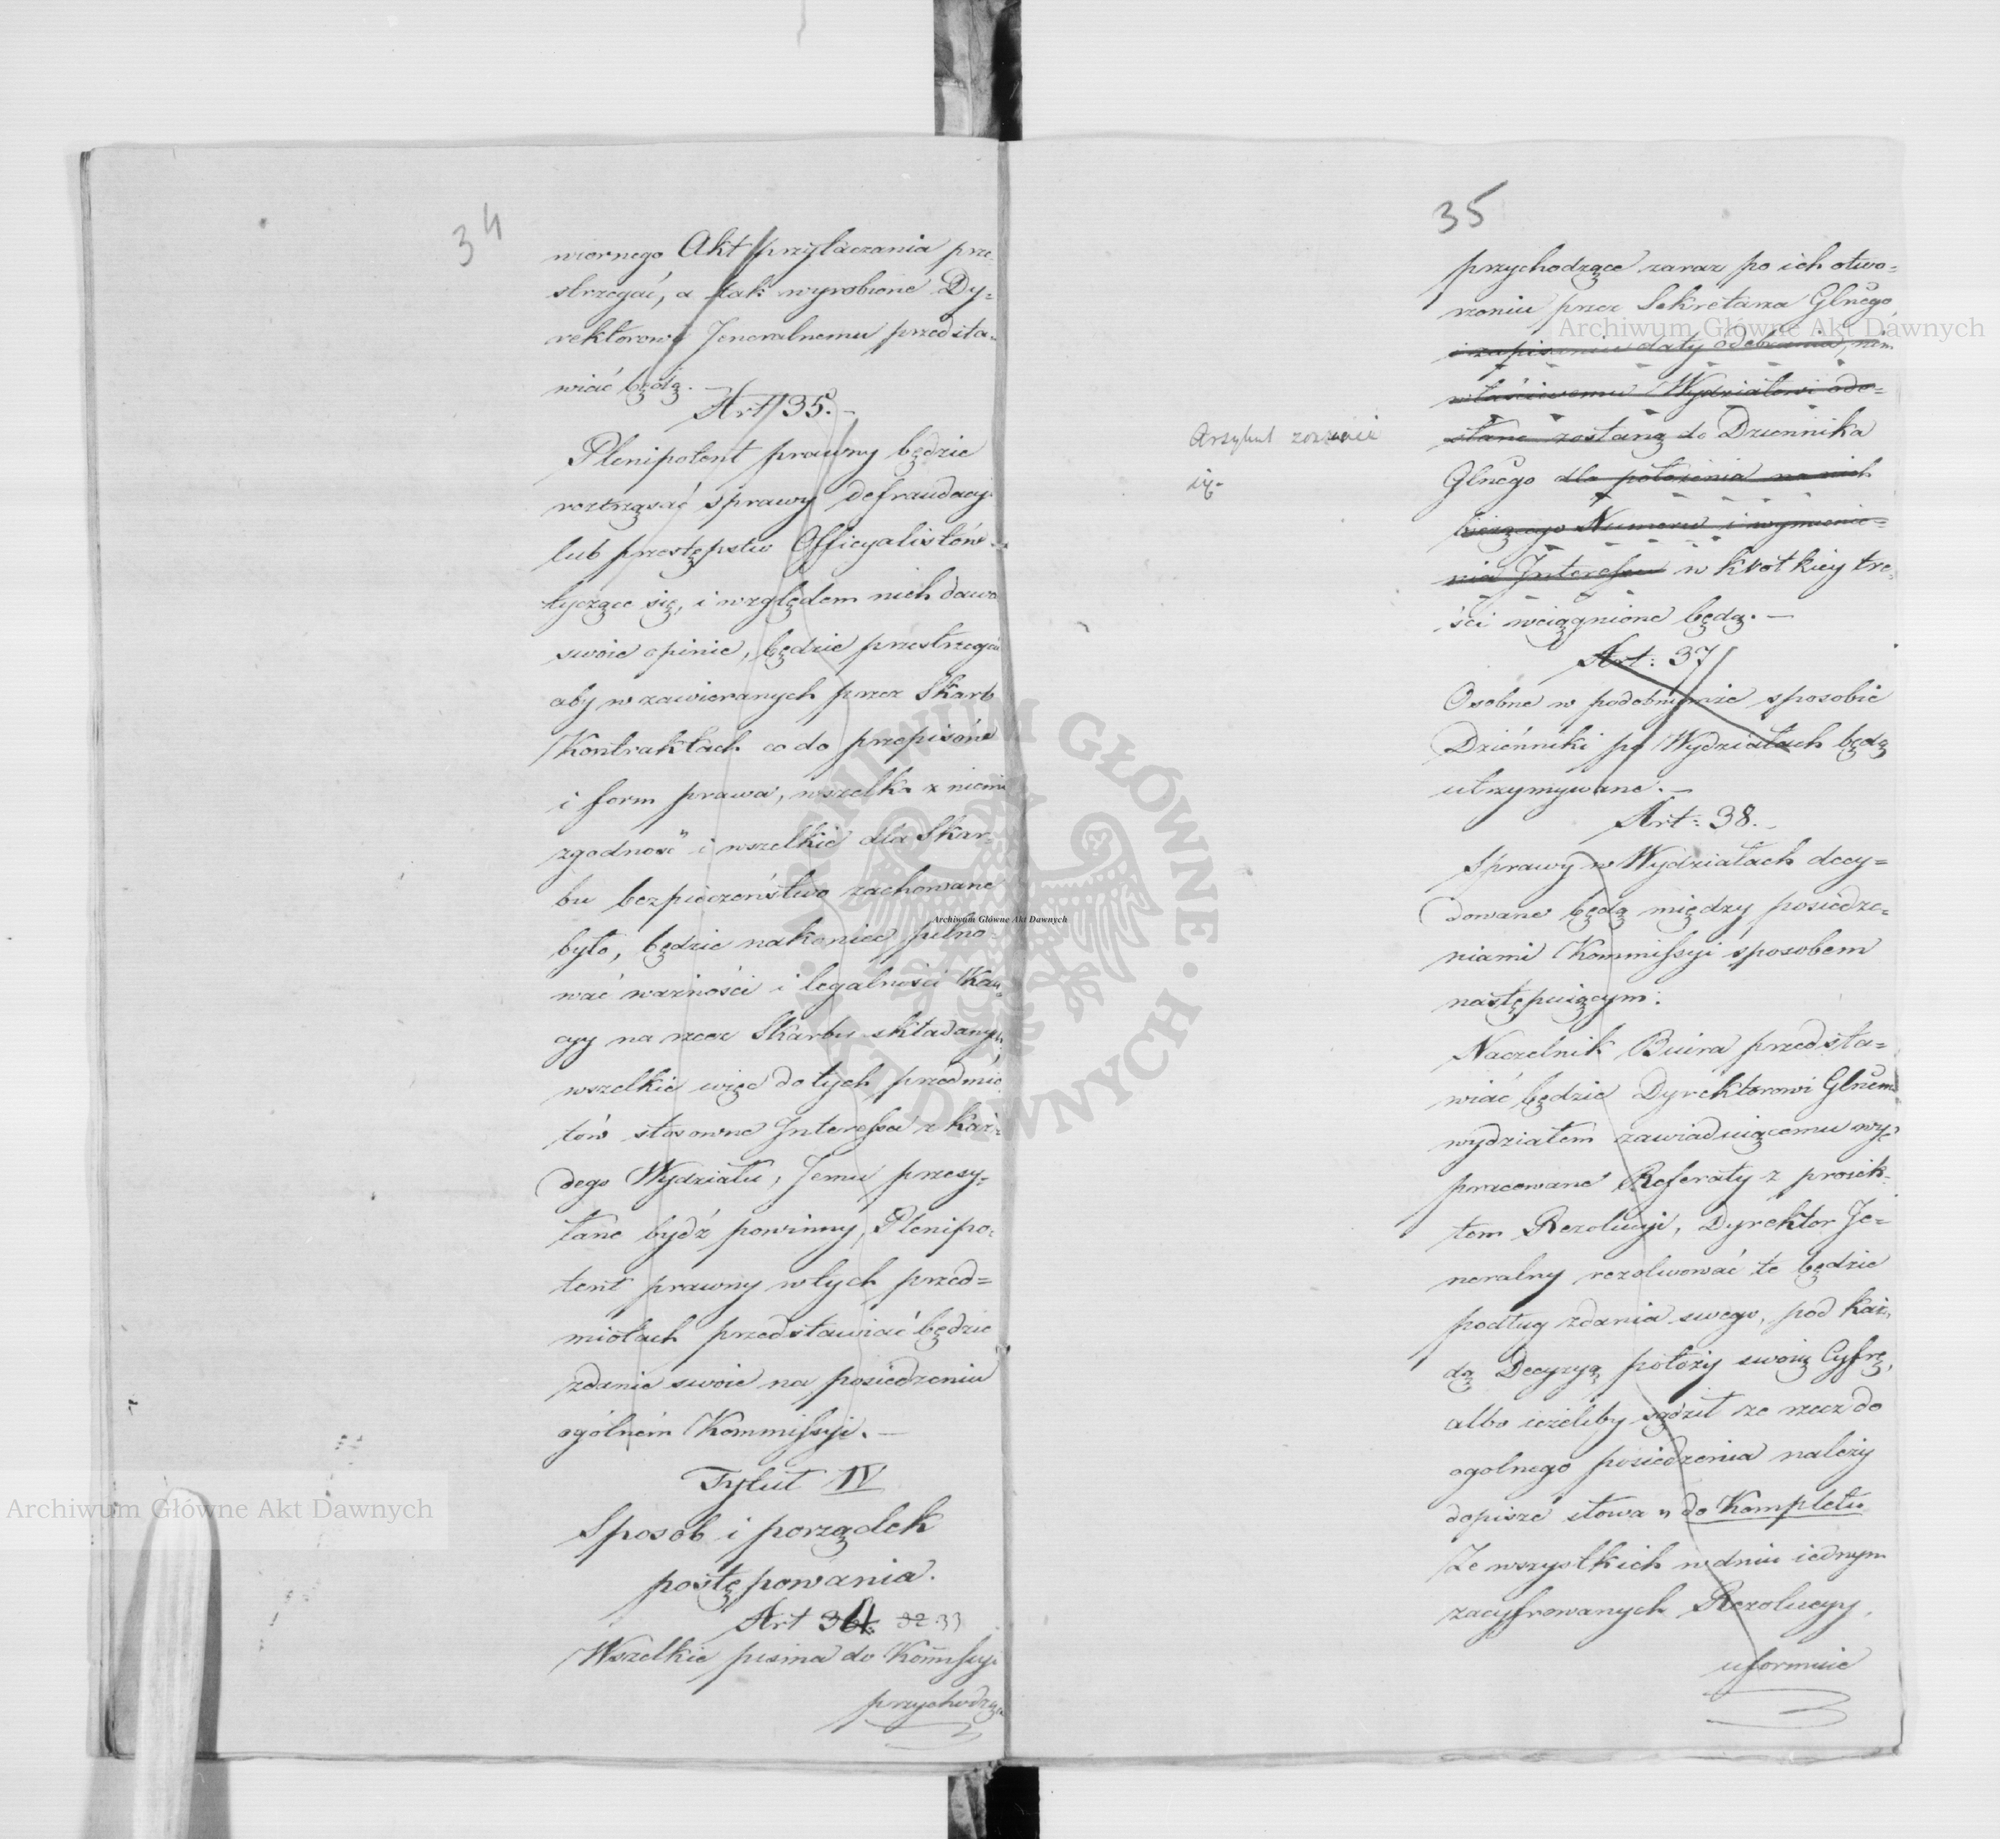 34
wiornego Akt przyłączania prze-
strzegać, a tak wyrobione Dy-
rektorowi Jeneralnemu przedsta-
wiać będą.
Art 35. –
Plenipotent prawny będzie
roztrząsać sprawy defraudacyi
lub przestępstw Officyalistów
tyczące się, i względem nich dawać
swoie opinie, będzie przestrzegać
aby w zawieranych przez Skarb
Kontraktach co do przepisów
i form prawa, wszelka z niemi
zgodność i wszelkie dla Skar-
bu bezpieczeństwo zachowane
było, będzie nakoniec pilno-
wać ważności i legalności Kau-
cyy na rzecz Skarbu składanych,
wszelkie więc do tych przedmio-
tów stosowne Interessa z każ-
dego Wydziału, Jemu przesy-
łane bydź powinny, Plenipo-
tent prawny w tych przed-
miotach przedstawiać będzie
zdanie swoie na posiedzeniu
ogólném Kommissyi. –
Tytuł IV
Sposób i porządek
postępowania.
Art 34. 32 33
Wszelkie pisma do Kommissyi
przychodzące
35
przychodzące zaraz po ich otwo-
rzeniu przez Sekretarza Glnego
i zapisaniu daty odebrania, nim
właściwemu Wydziałowi ode-
słane zostaną do Dziennika
Glnego dla położenia na nich
bieżącego Numeru i wymienie-
nia Interessu w krótkiey tre-
ści wciągnione będą. –
Artykuł
Art: 37
Osobne w podobnymże sposobie
Dzienniki po Wydziałach będą
utrzymywane. –
Art: 38. –
Sprawy w Wydziałach decy-
dowane będą między posiedze-
niami Kommissyi sposobem
następuiącym:
Naczelnik Biura przedsta-
wiać będzie Dyrektorowi Glnemu
wydziałem zawiaduiącemu wy-
pracowane Referaty z proiek-
tem Rezolucyi, Dyrektor Je-
neralny rezolwować te będzie
podług zdania swego, pod każ-
dą Decyzyą położy swoią Cyfrę,
albo ieżeliby sądził że rzecz do
ogolnego posiedzenia należy
dopisze słowa „ do Kompletu
Ze wszystkich w dniu iednym
zacyfrowanych Rezolucyy,
uformuie
Archiwum Główne Akt Dawnych
Archiwum Główne Akt Dawnych
Archiwum Główne Akt Dawnych
ARCHIWUM GŁÓWNE AKT DAWNYCH